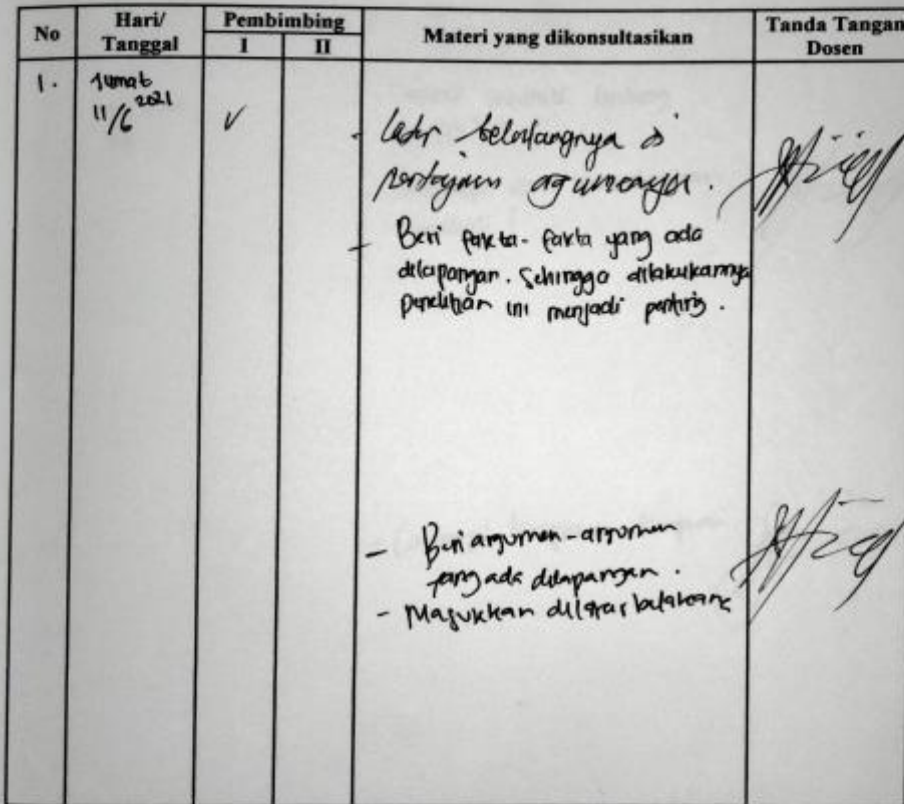 No
Hari/
Tanggal
Pembimbing
I
II
Materi yang dikonsultasikan
Tanda Tangan
Dosen
1.
Jumat
11/6 2021
✓
- Latar belakangnya di
pertajam argumennya.
- Beri fakta-fakta yang ada
dilapangan. Sehingga dilakukannya
penelitian ini menjadi penting.
- Beri argumen-argumen
yang ada dilapangan.
- Masukkan dilatar belakang